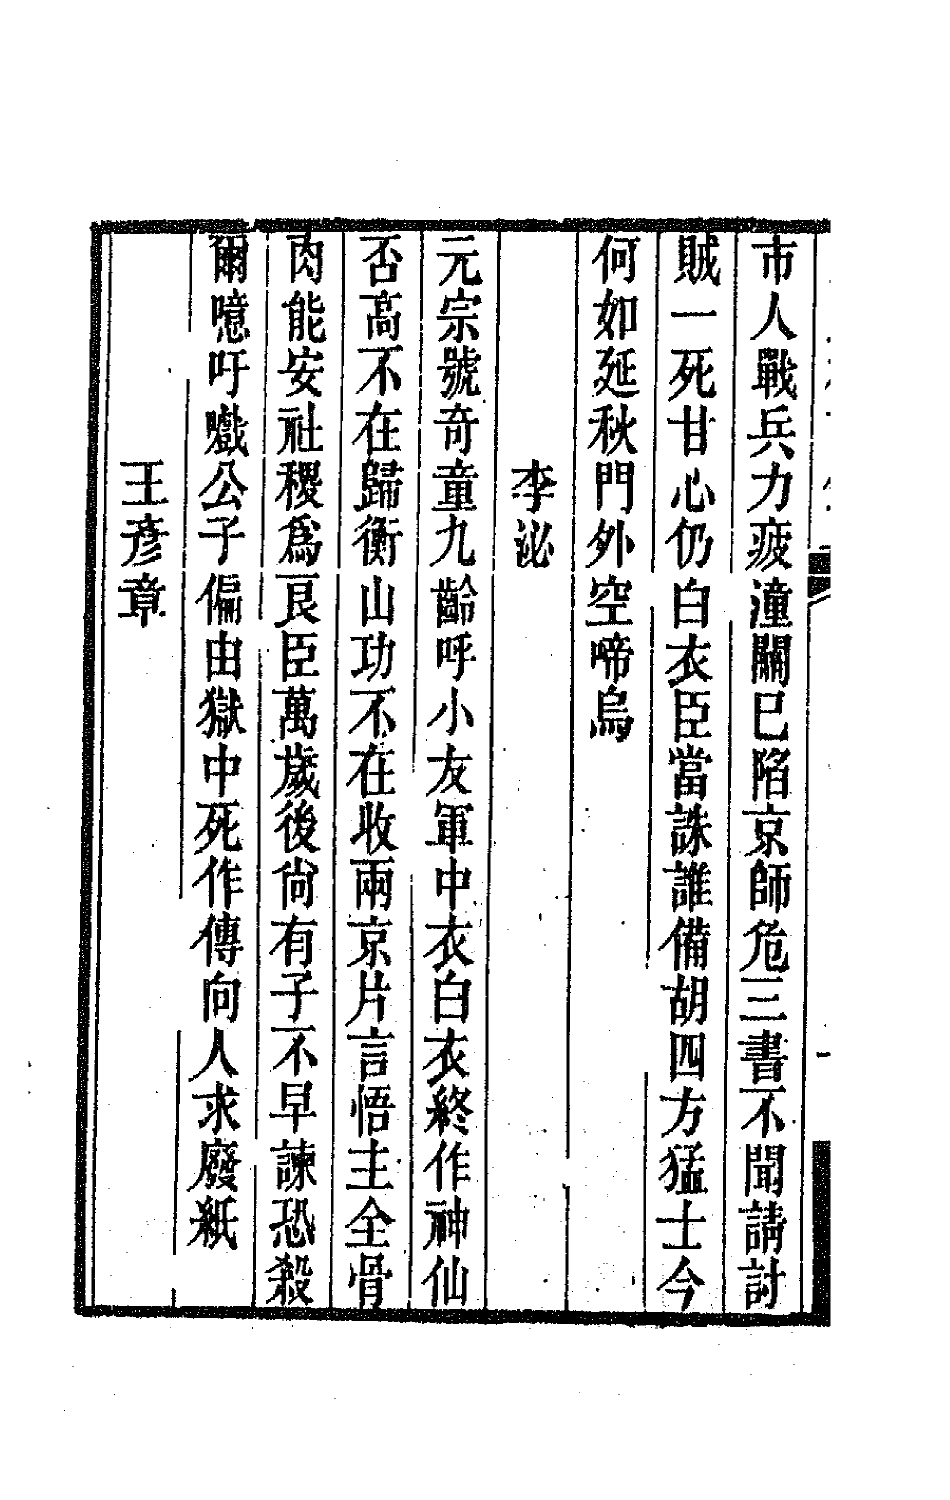 市人戰兵力疲潼關巳陷京師危三書不聞請討
賊一死甘心仍白衣臣當誅誰備胡四方猛士今
何如延秋門外空啼烏
李泌
元宗號奇童九齡呼小友軍中衣白衣終作神仙
否高不在歸衡山功不在收兩京片言悟主全骨
肉能安社稷爲良臣萬歲後尙有子不早諫恐殺
爾噫吁戲公子偏由獄中死作傳向人求廢紙
王彥章